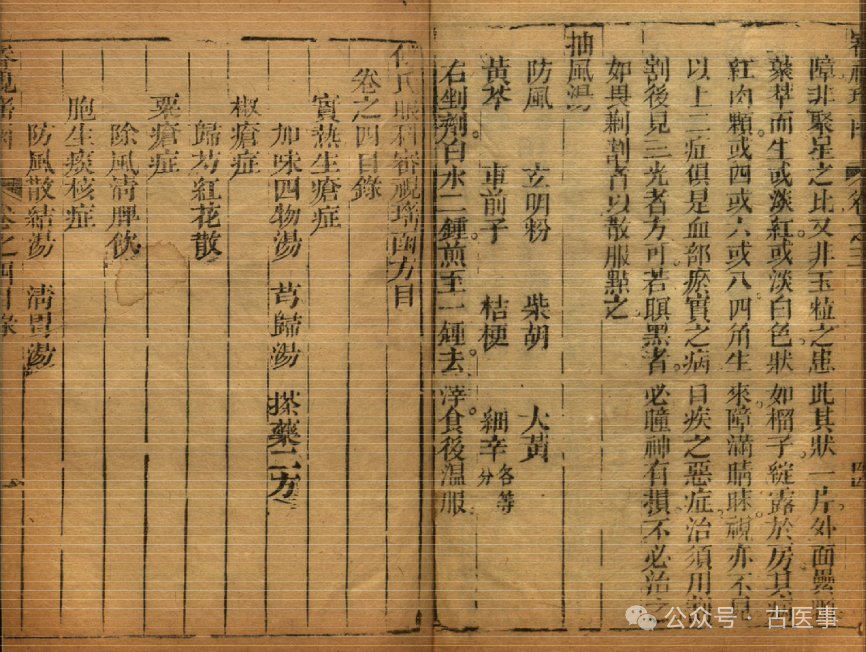 障非聚星之比又非玉粒之患此其狀一片外面疊
葉萃而生或淡紅或淡白色狀如榴子綻露於房其
紅肉顆或四或六或八四角生來障滿睛昧視亦不
以上二症俱是血部瘀實之病目疾之惡症治須用
割後見三光者方可若瞑黑者必瞳神有損不必治之
如畏剃割者以散服點之
抽風湯
防風 玄明粉 柴胡 大黃
黃芩 車前子 桔梗 細辛各等分
右剉劑白水二鍾煎至一鍾去滓食後温服
傅氏眼科審視瑤函方目
卷之四目錄
實熱生瘡症
加味四物湯 芎歸湯 搽藥二方
椒瘡症
歸芍紅花散
粟瘡症
除風清脾飲
胞生痰核症
防風散結湯 清胃湯
審視瑤函 卷之四目錄 一
公众号·古医事